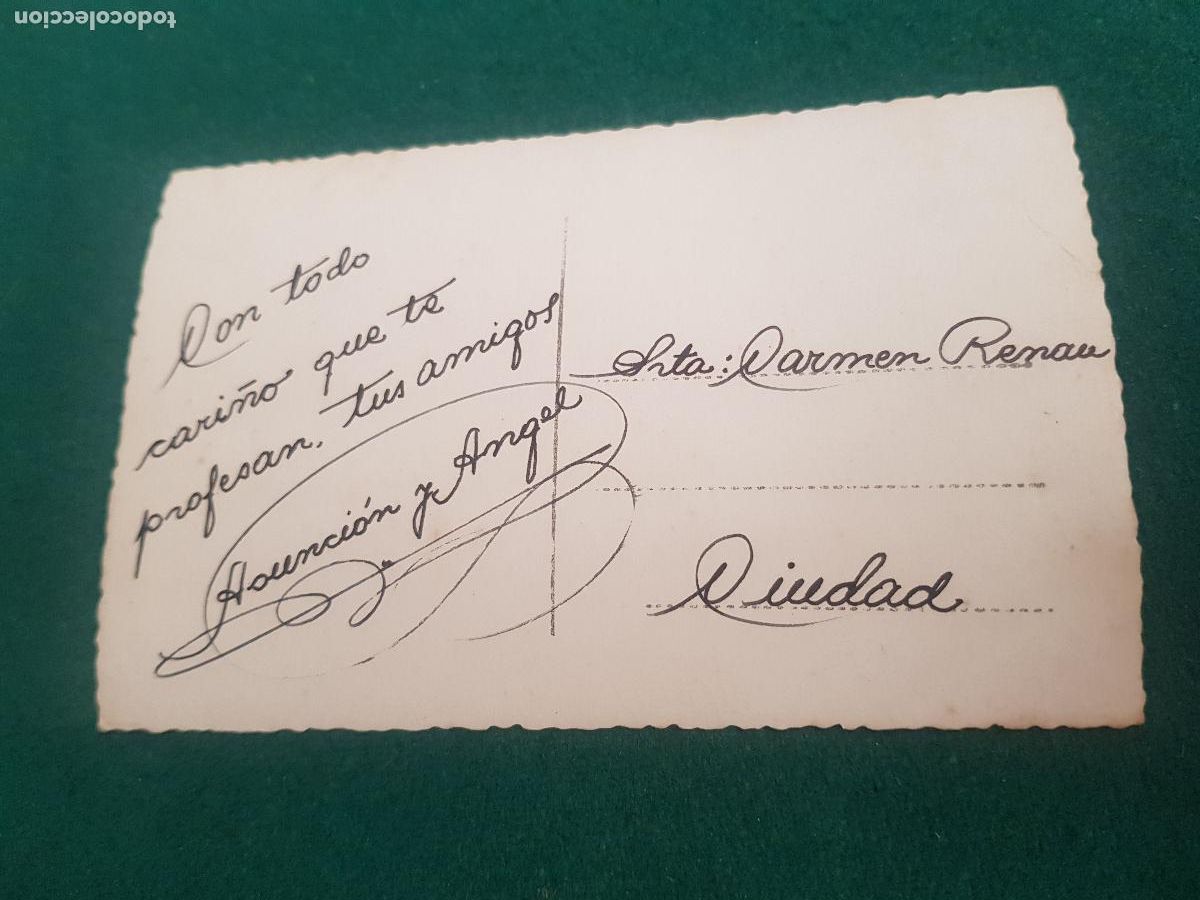 Con todo
cariño que te
profesan, tus amigos
Asunción y Angel
Srta: Carmen Renau
Ciudad
todocoleccion